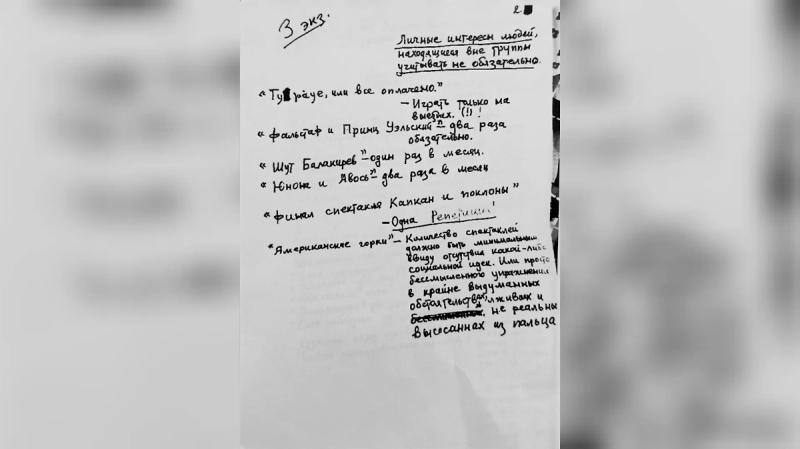 3 экз.
2.
Личные интересы людей,
находящиеся вне группы
учитывать не обязательно.
"Ту рауе, или все оплачено."
– Играть только на
выездах. (!) !
"Фальстаф и Принц Уэльский" – два раза
обязательно.
"Шут Балакирев" – один раз в месяц.
"Юнона и Авось" – два раза в месяц
"Финал спектакля Капкан и поклоны"
– Одна Репетиция!
"Американские горки" – Количество спектаклей
должно быть минимальным
ввиду отсутствия какой-либо
социальной идеи. Или просто
бессмысленного упражнения
в крайне выдуманных
обстоятельствах, лживых и
не реальны
высосанных из пальца